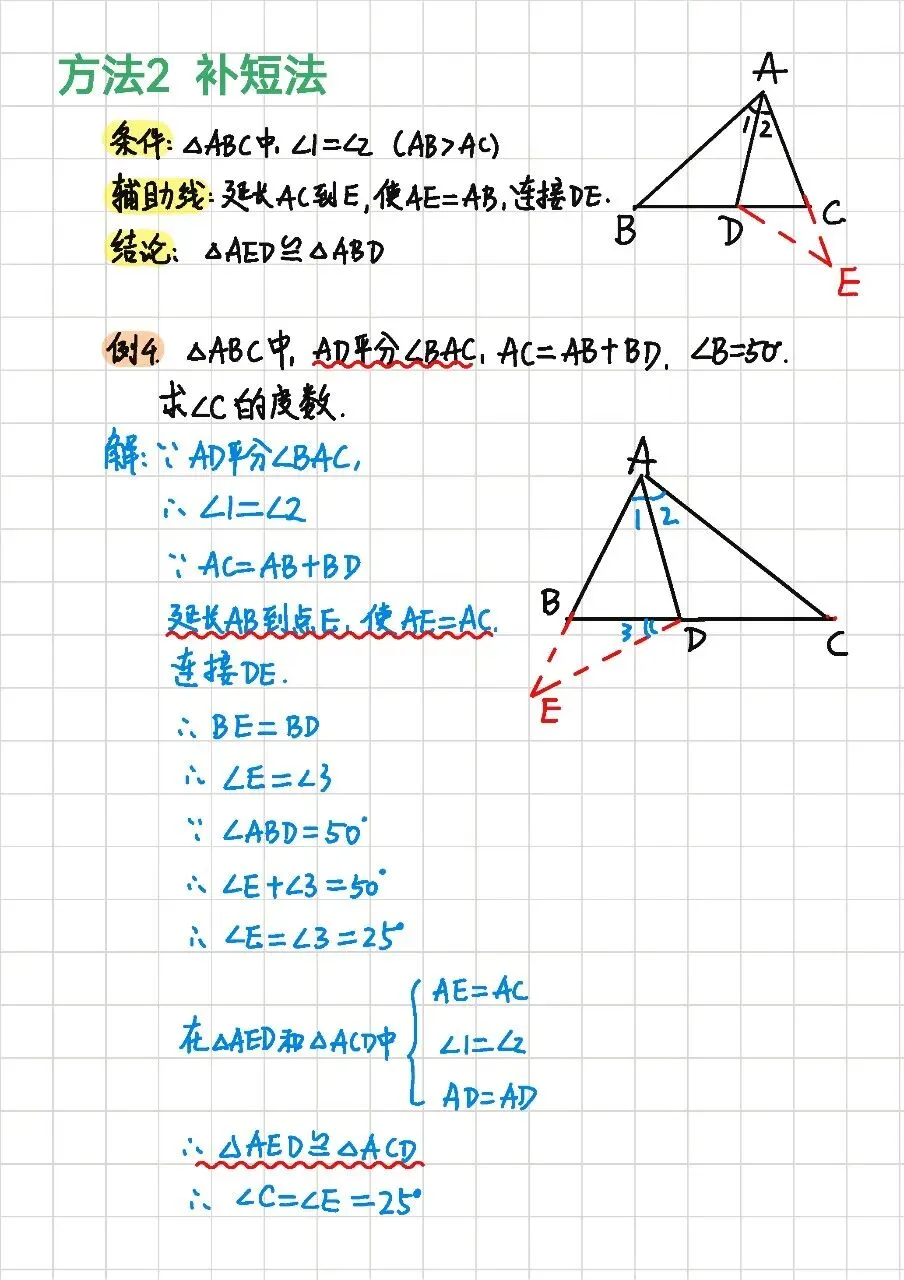 方法2 补短法
条件：△ABC中，∠1=∠2（AB>AC）
辅助线：延长AC到E，使AE=AB，连接DE.
结论：△AED≌△ABD
A
1 2
B D C
E
例4. △ABC中，AD平分∠BAC，AC=AB+BD，∠B=50°.
求∠C的度数.
解：∵AD平分∠BAC，
∴∠1=∠2
∵AC=AB+BD
延长AB到点E，使AE=AC.
连接DE.
∴BE=BD
∴∠E=∠3
∵∠ABD=50°
∴∠E+∠3=50°
∴∠E=∠3=25°
在△AED和△ACD中
AE=AC
∠1=∠2
AD=AD
∴△AED≌△ACD
∴∠C=∠E=25°
A
1 2
B 3 D C
E